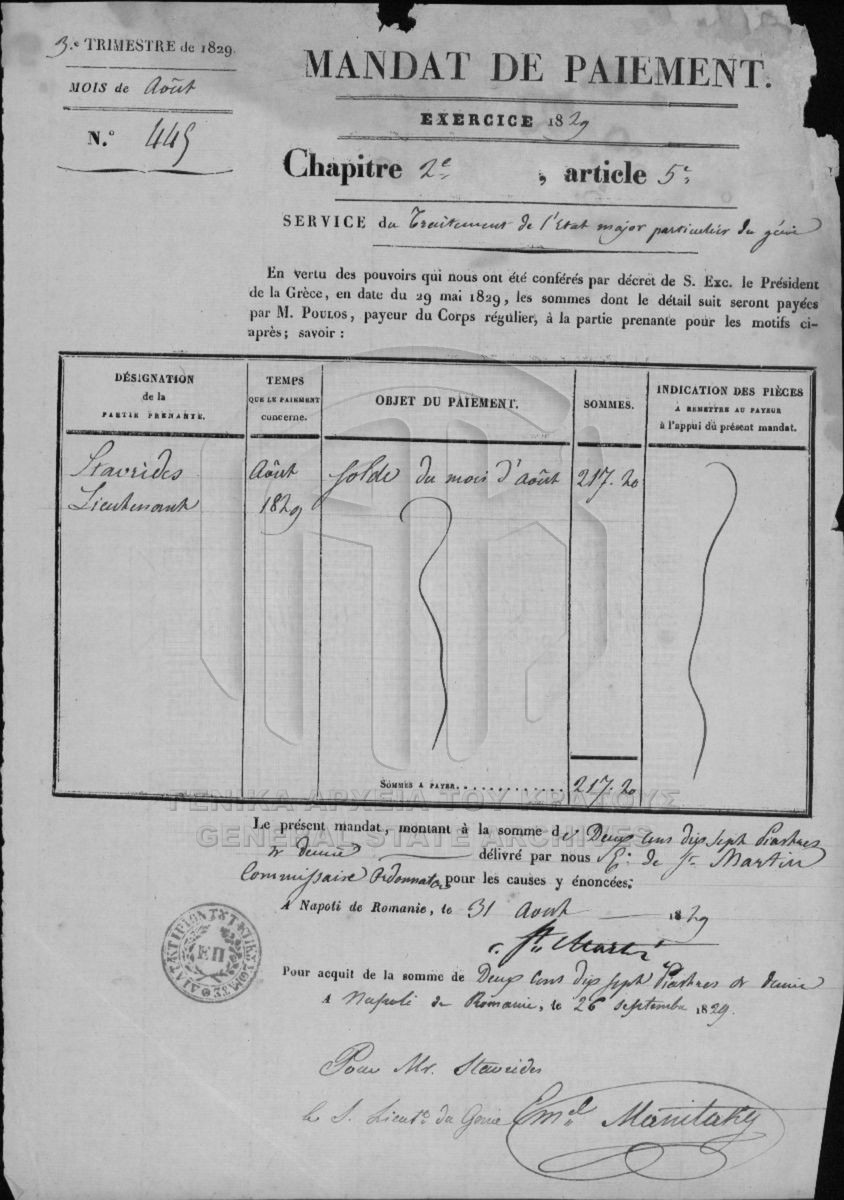 3.e TRIMESTRE de 1829.
MOIS de Août
N.° 445
MANDAT DE PAIEMENT.
EXERCICE 1829
Chapitre 2e , article 5e
SERVICE du Traitement de l'Etat major particulier du génie
En vertu des pouvoirs qui nous ont été conférés par décret de S. Exc. le Président
de la Grèce, en date du 29 mai 1829, les sommes dont le détail suit seront payées
par M. POULOS, payeur du Corps régulier, à la partie prenante pour les motifs ci-
après; savoir :
DÉSIGNATION
de la
PARTIE PRENANTE.
TEMPS
QUE LE PAIEMENT
concerne.
OBJET DU PAIEMENT.
SOMMES.
INDICATION DES PIÈCES
A REMETTRE AU PAYEUR
à l'appui du présent mandat.
Stavrides Août Solde du mois d'Août 217.20
Lieutenant 1829
SOMMES A PAYER. 217.20
ΓΕΝΙΚΑ ΑΡΧΕΙΑ ΤΟΥ ΚΡΑΤΟΥΣ
GENERAL STATE ARCHIVES
Le présent mandat, montant à la somme de Deux cens dix sept Piastres
& demie délivré par nous E. de St. Martin
Commissaire Ordonnateur pour les causes y énoncées;
A Napoli de Romanie, le 31 Août 1829
St. Martin
ΕΠ
Pour acquit de la somme de Deux cens dix sept Piastres & demie
A Napoli de Romanie, le 26 septembre 1829.
Pour Mr. Stavrides
le S. Lieut. du Genie Emel Manitaky